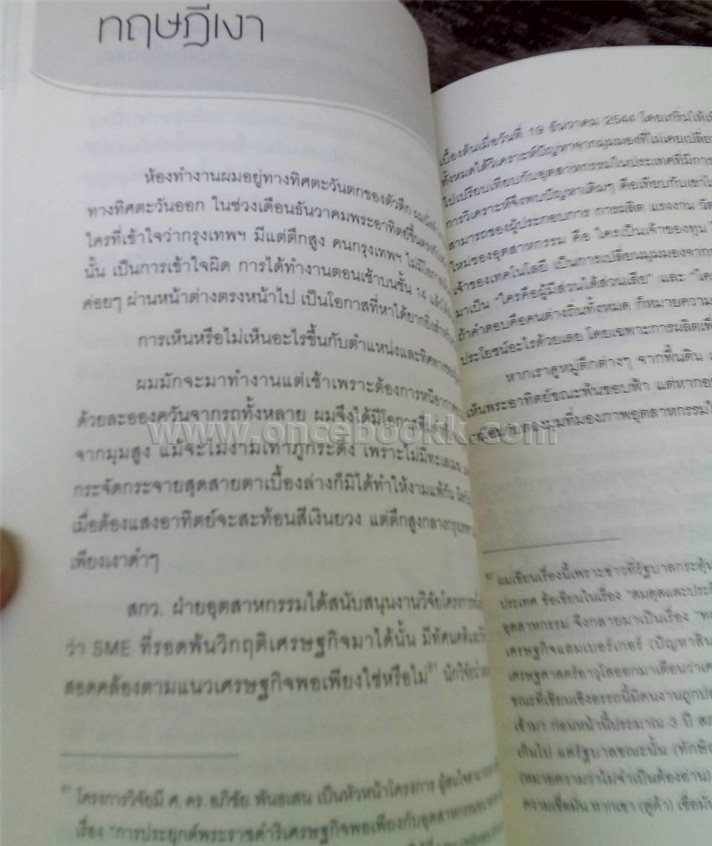 ทฤษฎีเงา
ห้องทำงานผมอยู่ทางทิศตะวันตกของตัวตึก
ทางทิศตะวันออก ในช่วงเดือนธันวาคมพระอาทิตย์ขึ้น
ใครที่เข้าใจว่ากรุงเทพฯ มีแต่ตึกสูง คนกรุงเทพฯ ไม่มีโอกาส
นั้น เป็นการเข้าใจผิด การได้ทำงานตอนเช้าบนชั้น 14 แล้ว
ค่อยๆ ผ่านหน้าต่างตรงหน้าไป เป็นโอกาสที่หาได้ยากยิ่ง
การเห็นหรือไม่เห็นอะไรขึ้นกับตำแหน่งและทิศทาง
ผมมักจะมาทำงานแต่เช้าเพราะต้องการหนี
ด้วยละอองควันจากรถทั้งหลาย ผมจึงได้มีโอกาส
จากมุมสูง แม้จะไม่งามเท่าภูกระดึง เพราะไม่มีทะเลหมอก
กระจัดกระจายสุดสายตาเบื้องล่างก็มิได้ทำให้งามแพ้กัน
เมื่อต้องแสงอาทิตย์จะสะท้อนสีเงินยวง แต่ตึกสูงกลางกรุงเทพฯ
เพียงเงาดำๆ
สกว. ฝ่ายอุตสาหกรรมได้สนับสนุนงานวิจัยโครงการ
ว่า SME ที่รอดพ้นวิกฤติเศรษฐกิจมาได้นั้น มีทัศนคติ
สอดคล้องตามแนวเศรษฐกิจพอเพียงใช่หรือไม่ นักวิจัย
โครงการวิจัยมี ศ. ดร. อภิชัย พันธเสน เป็นหัวหน้าโครงการ ผู้สนใจ
เรื่อง "การประยุกต์พระราชดำริเศรษฐกิจพอเพียงกับอุตสาหกรรม
เบื้องต้นเมื่อวันที่ 19 ธันวาคม 2544 โดยเกริ่นให้
ทั้งหมดได้วิเคราะห์ปัญหาจากมุมมองที่ไม่เคยเปลี่ยน
ไปเปรียบเทียบกับอุตสาหกรรมในประเทศที่มีการ
การวิเคราะห์จึงพบปัญหาเดิมๆ คือเทียบกับเขา
สามารถของผู้ประกอบการ การผลิต แรงงาน
ใหม่ของอุตสาหกรรม คือ ใครเป็นเจ้าของทุน
เจ้าของเทคโนโลยี เป็นการเปลี่ยนมุมมองจาก
มาเป็น "ใครคือผู้มีส่วนได้ส่วนเสีย" และ
ถ้าคำตอบคือคนต่างถิ่นทั้งหมด ก็หมายความ
ประโยชน์อะไรด้วยเลย โดยเฉพาะการผลิต
หากเราดูหมู่ตึกต่างๆ จากพื้นดิน
เห็นพระอาทิตย์ขณะพ้นขอบฟ้า แต่หาก
มุมที่มองภาพอุตสาหกรรม
www.oncebookk.com
ผมเขียนเรื่องนี้เพราะข่าวที่รัฐบาลกระตุ้น
ประเทศ ข้อเขียนในเรื่อง
อุตสาหกรรม จึงกลายมาเป็นเรื่อง
เศรษฐกิจแฮมเบอร์เกอร์
เศรษฐศาสตร์อาวุโสออกมาเตือนว่า
ขณะที่เขียนเชิงอรรถนี้มีคนงานถูก
เข้ามา ก่อนหน้านี้ประมาณ 3 ปี
เกินไป แต่รัฐบาลขณะนั้น
(หมายความว่าไม่จำเป็นต้องอ่าน)
ความเชื่อมั่น หากเขา (ลูกค้า) เชื่อมั่น